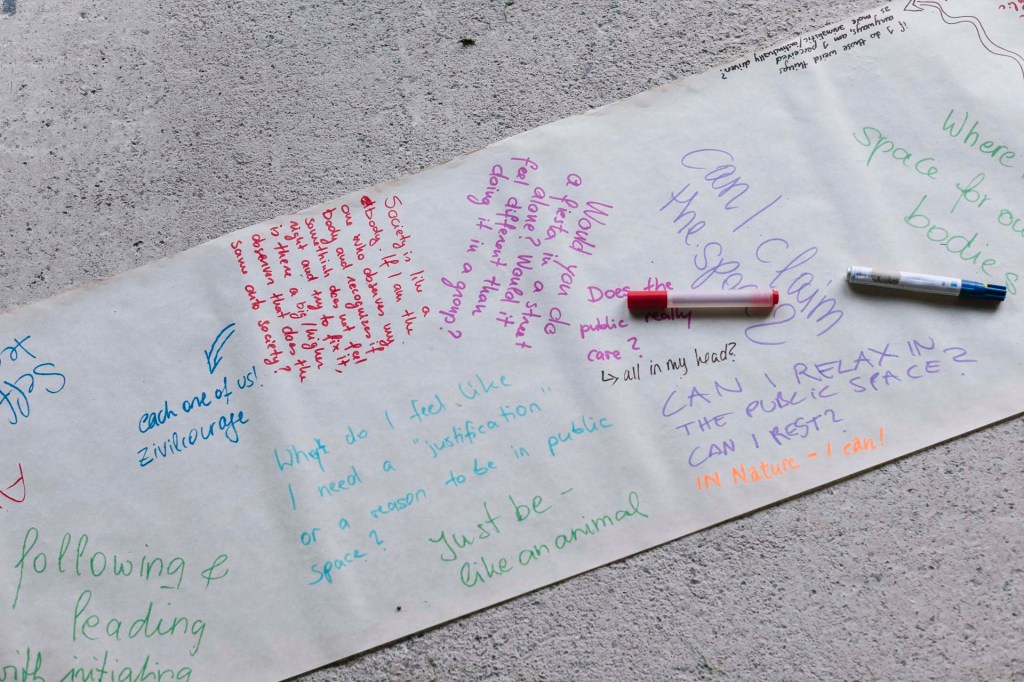 if I do those weird things
anyways, am I perceived
as more animalistic/
Where
space for our
bodies
can I claim
the space
Would you do
a fiesta in a street
alone? Would it
feel different than
doing it in a group?
Society is liv a
body. If I am the
one who observes my
body and recognizes if
somethink does not feel
right and try to fix it,
is there a big/higher
observer that does the
same onto society?
Does the
public really
care?
↳ all in my head?
CAN I RELAX IN
THE PUBLIC SPACE?
CAN I REST?
IN Nature - I can!
each one of us!
zivilcourage
Why do I feel like
I need a "justification"
or a reason to be in public
space?
Just be -
like an animal
following &
leading
with initiating